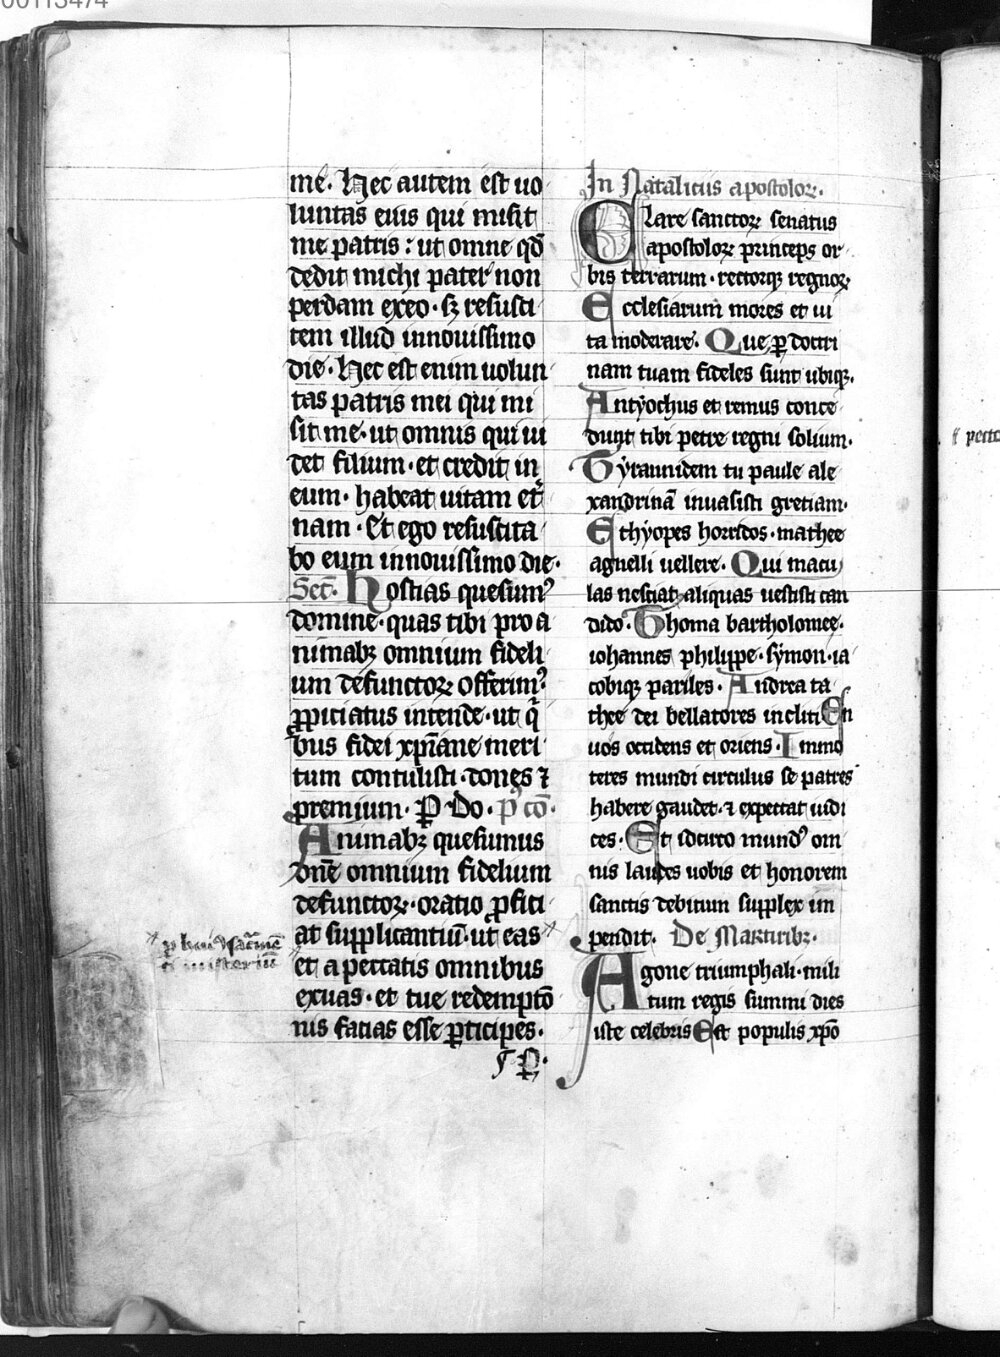 00113474
me. Hec autem est uo
luntas eius qui misit
me patris : ut omne qđ
dedit michi pater non
perdam exeo . sꝫ resusci
tem illud innouissimo
die . Hec est enim uolun
tas patris mei qui mi
sit me . ut omnis qui ui
det filium . et credit in
eum . habeat uitam et̾
nam . Et ego resuscita
bo eum innouissimo die .
Secͬ. Hostias quesumꝰ
domine . quas tibi pro a
nimabꝫ omnium fideli
um defunctoꝝ offerimꝰ
ꝓpiciatus intende . ut qͥ
bus fidei xp̄iane meri
tum contulisti . dones ⁊
premium . ꝑ Do . pꝰ cō .
Animabꝫ quesumus
dn̄e omnium fidelium
defunctoꝝ . oratio ꝓfici
at supplicantiū . ut eas
et a peccatis omnibus
exuas . et tue redemptō
nis facias esse ꝑticipes .
ꝑ .
In Natalitiis apostoloꝝ .
Clare sanctoꝝ senatus
apostoloꝝ princeps or
bis terrarum . rectorqꝫ regnoꝝ
Ecclesiarum mores et ui
ta moderare . Que ꝑ doctri
nam tuam fideles sunt ubiqꝫ .
Antyochus et remus conce
dunt tibi petre regni solium .
Tyrannidem tu paule ale
xandrinā inuasisti greciam .
Ethyopes horridos . mathee
agnelli uellere . Qui macu
las nesciat aliquas uestisti can
dido . Thoma bartholomee .
iohannes philippe . symon . ia
cobiqꝫ pariles . Andrea ta
thee dei bellatores incliti En
uos occidens et oriens . Immo
teres mundi circulus se patres
habere gaudet . ⁊ expectat iudi
ces . Et idcirco mundꝰ om
nis laudes uobis et honorem
sanctis debitum supplex im
pendit . De Martiribꝫ .
Agone triumphali . mili
tum regis summi dies
iste celebris Est populis xp̄o